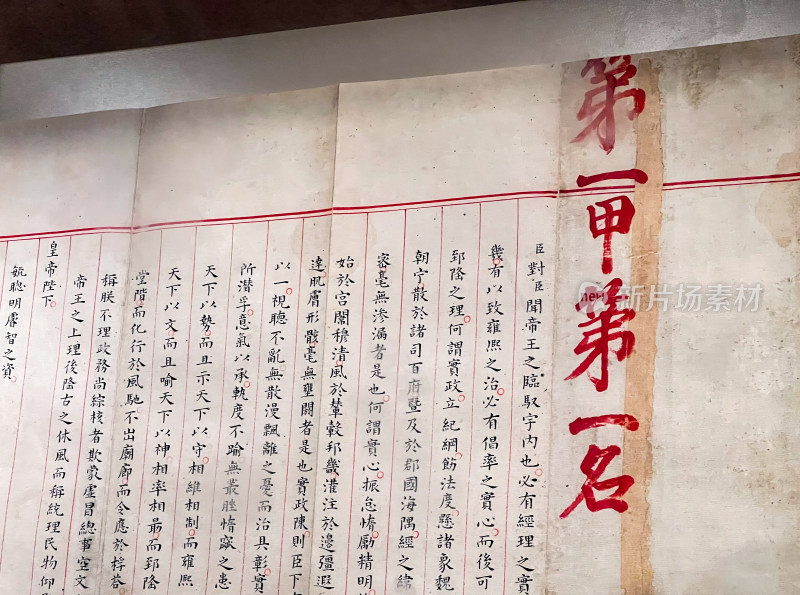 第一甲第一名
臣對臣聞帝王之臨馭宇內也必有經理之實
幾有以致雍熙之治必有倡率之實心而後可
郅隆之理何謂實政立紀綱飭法度懸諸象魏
朝宁散於諸司百府暨及於郡國海隅經之緯
容毫無滲漏者是也何謂實心振怠惰勵精明
始於宮闈穆清風於輦轂邦畿灌注於邊疆遐
達肌膚形骸毫無壅閼者是也實政陳則臣下
以一視聽不亂無散漫飄離之憂而治具彰實
所潛孚意氣以承軌度不踰無叢脞惰窳之患
天下以勢而且示天下以守相維相制而雍熙
天下以文而且喻天下以神相率相最而郅隆
堂階而化行於風馳不出廊廟而令應於桴荅
稱朕不理政務尚綜核者欺蒙虛冒總事空文
帝王之上理後隆古之休風而稱統理民物仰
皇帝陛下
毓聰明睿智之資
新片场 iStock